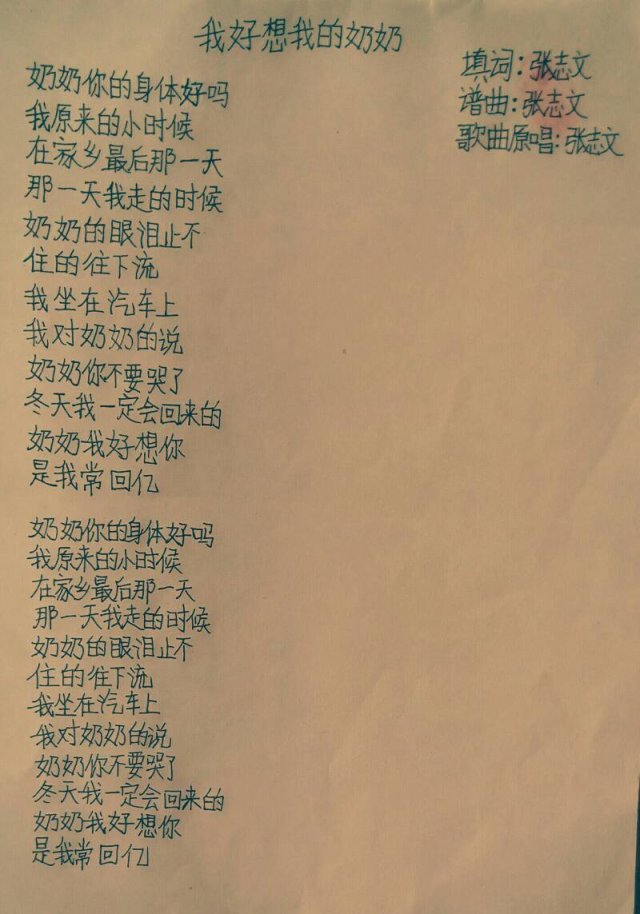 我好想我的奶奶
填词:张志文
谱曲:张志文
歌曲原唱:张志文
奶奶你的身体好吗
我原来的小时候
在家乡最后那一天
那一天我走的时候
奶奶的眼泪止不
住的往下流
我坐在汽车上
我对奶奶的说
奶奶你不要哭了
冬天我一定会回来的
奶奶我好想你
是我常回亿
奶奶你的身体好吗
我原来的小时候
在家乡最后那一天
那一天我走的时候
奶奶的眼泪止不
住的往下流
我坐在汽车上
我对奶奶的说
奶奶你不要哭了
冬天我一定会回来的
奶奶我好想你
是我常回亿